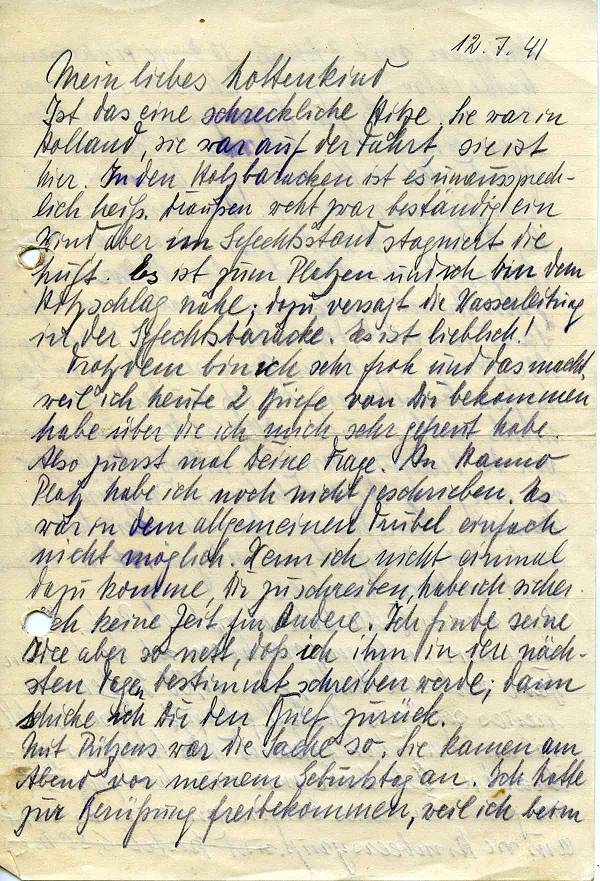 12.7.41
Mein liebes Lottenkind
Ist das eine schreckliche Hitze. Sie war in
Holland, sie war auf der Fahrt, sie ist
hier. In den Holzbaracken ist es unaussprech-
lich heiß. Draußen weht zwar beständig ein
Wind aber im Gefechtsstand stagniert die
Luft. Es ist zum Platzen und ich bin dem
Hitzschlag nahe; dazu versagt die Wasserleitung
in der Gefechtsbaracke. Es ist lieblich!
Trotzdem bin ich sehr froh und das macht,
weil ich heute 2 Briefe von Dir bekommen
habe über die ich mich sehr gefreut habe.
Also zuerst mal Deine Frage. An Hanno
Platz habe ich noch nicht geschrieben. Es
war in dem allgemeinen Trubel einfach
nicht möglich. Wenn ich nicht einmal
dazu komme, Dir zu schreiben, habe ich sicher-
lich keine Zeit für Andere. Ich finde seine
Idee aber so nett, daß ich ihm in den näch-
sten Tagen bestimmt schreiben werde; dann
schicke ich Dir den Brief zurück.
Mit war die Sache so. Sie kamen am
Abend vor meinem Geburtstag an. Ich hatte
zur Begrüßung freibekommen, weil ich beim